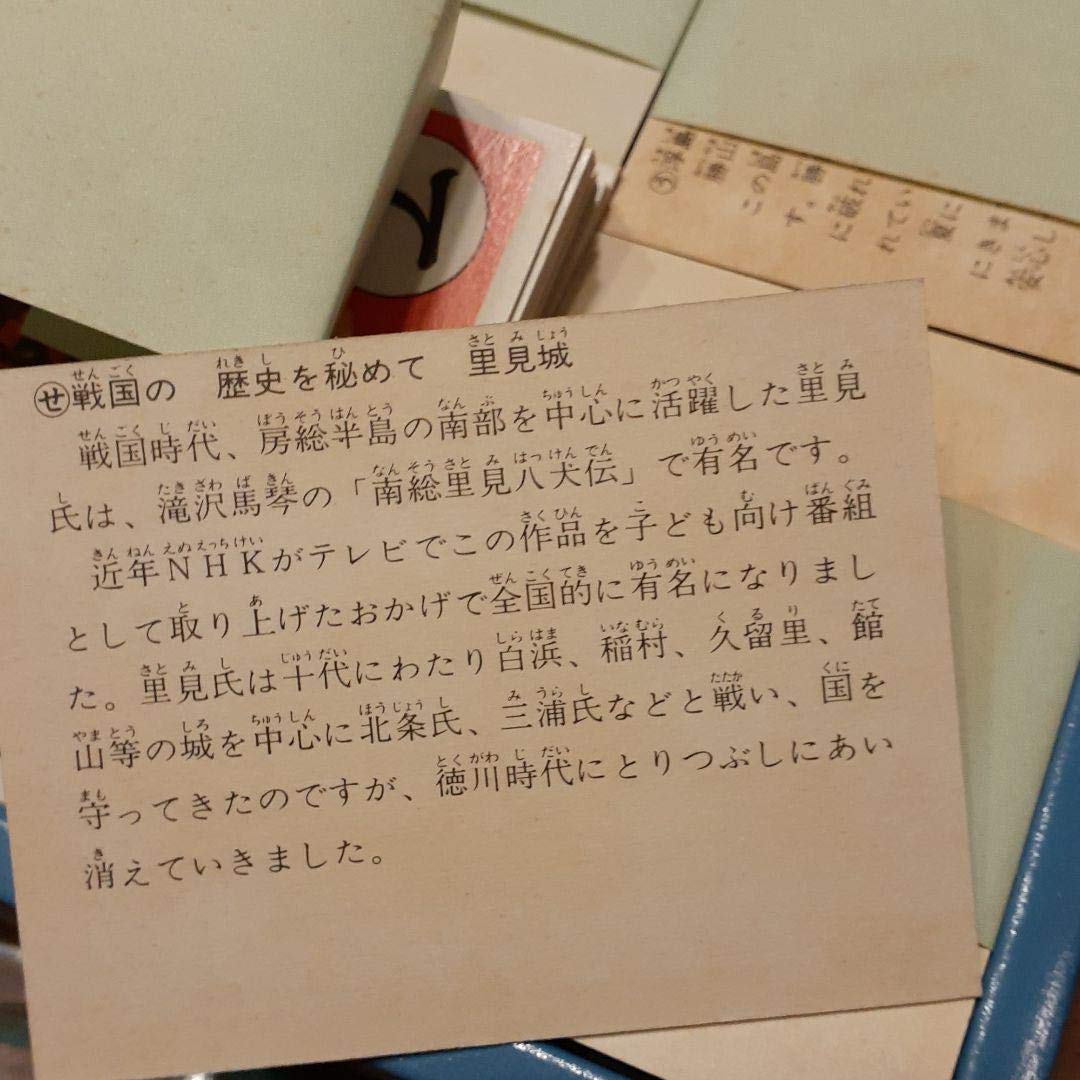 ㋝戦国の 歴史を秘めて 里見城
戦国時代、房総半島の南部を中心に活躍した里見
氏は、滝沢馬琴の「南総里見八犬伝」で有名です。
近年NHKがテレビでこの作品を子ども向け番組
として取り上げたおかげで全国的に有名になりまし
た。里見氏は十代にわたり白浜、稲村、久留里、館
山等の城を中心に北条氏、三浦氏などと戦い、国を
守ってきたのですが、徳川時代にとりつぶしにあい
消えていきました。
く
勝山
この城
す。勝
に破れ
れてい
夏に
にきま
安心し